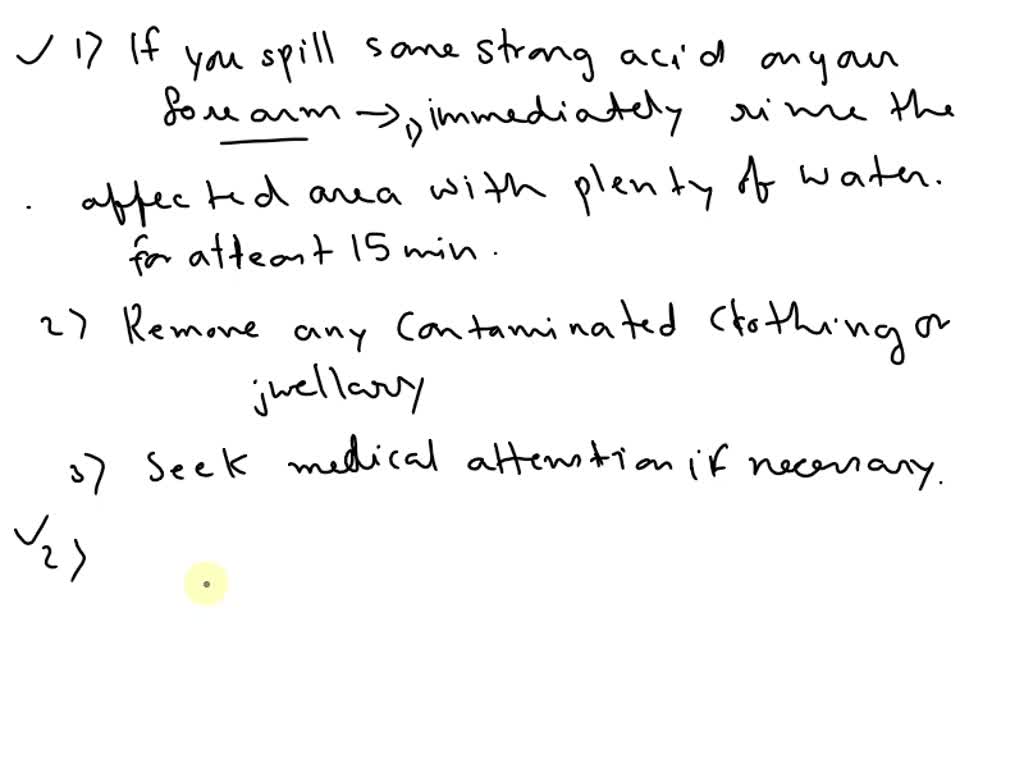 ✓ 1) If you spill some strong acid on your
forearm → 1) immediately rinse the
. affected area with plenty of water.
for atleast 15 min.
2) Remove any contaminated clothing or
jwellary
3) Seek medical attenstion if necessary.
✓ 2)